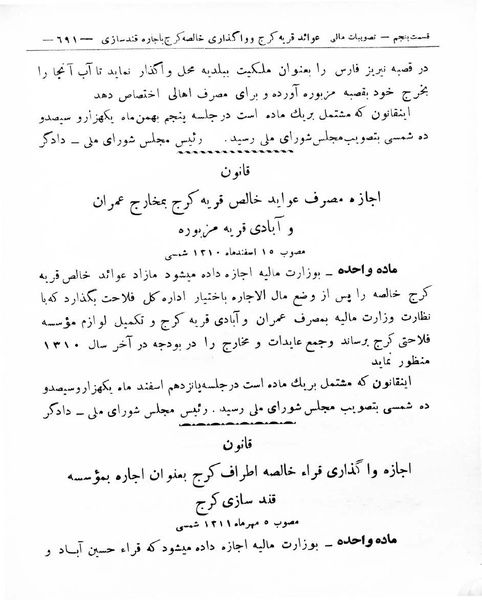 قسمت پنجم — تصویبات مالی عوائد قریه کرج و واگذاری خالصه کرج باجاره قندسازی — ۶۹۱ —
در قصبه نیریز فارس را بعنوان ملکیت ببلدیه محل واگذار نماید تا آب آنجا را
بخرج خود بقصبه مزبوره آورده و برای مصرف اهالی اختصاص دهد
اینقانون که مشتمل بریك ماده است درجلسه پنجم بهمن‌ماه یکهزارو سیصدو
ده شمسی بتصویب مجلس شورای ملی رسید. رئیس مجلس شورای ملی ـ دادگر
قانون
اجازه مصرف عواید خالص قریه کرج بمخارج عمران
و آبادی قریه مزبوره
مصوب ۱۵ اسفندماه ۱۳۱۰ شمسی
ماده واحده ـ بوزارت مالیه اجازه داده میشود مازاد عوائد خالص قریه
کرج خالصه را پس از وضع مال الاجاره باختیار اداره کل فلاحت بگذارد که با
نظارت وزارت مالیه بمصرف عمران و آبادی قریه کرج و تکمیل لوازم مؤسسه
فلاحتی کرج برساند وجمع عایدات و مخارج را در بودجه در آخر سال ۱۳۱۰
منظور نماید
اینقانون که مشتمل بریك ماده است درجلسه پانزدهم اسفند ماه یکهزاروسیصدو
ده شمسی بتصویب مجلس شورای ملی رسید. رئیس مجلس شورای ملی ـ دادگر
قانون
اجازه واگذاری قراء خالصه اطراف کرج بعنوان اجاره بمؤسسه
قند سازی کرج
مصوب ۵ مهرماه ۱۳۱۱ شمسی
ماده واحده ـ بوزارت مالیه اجازه داده میشود که قراء حسین آباد و